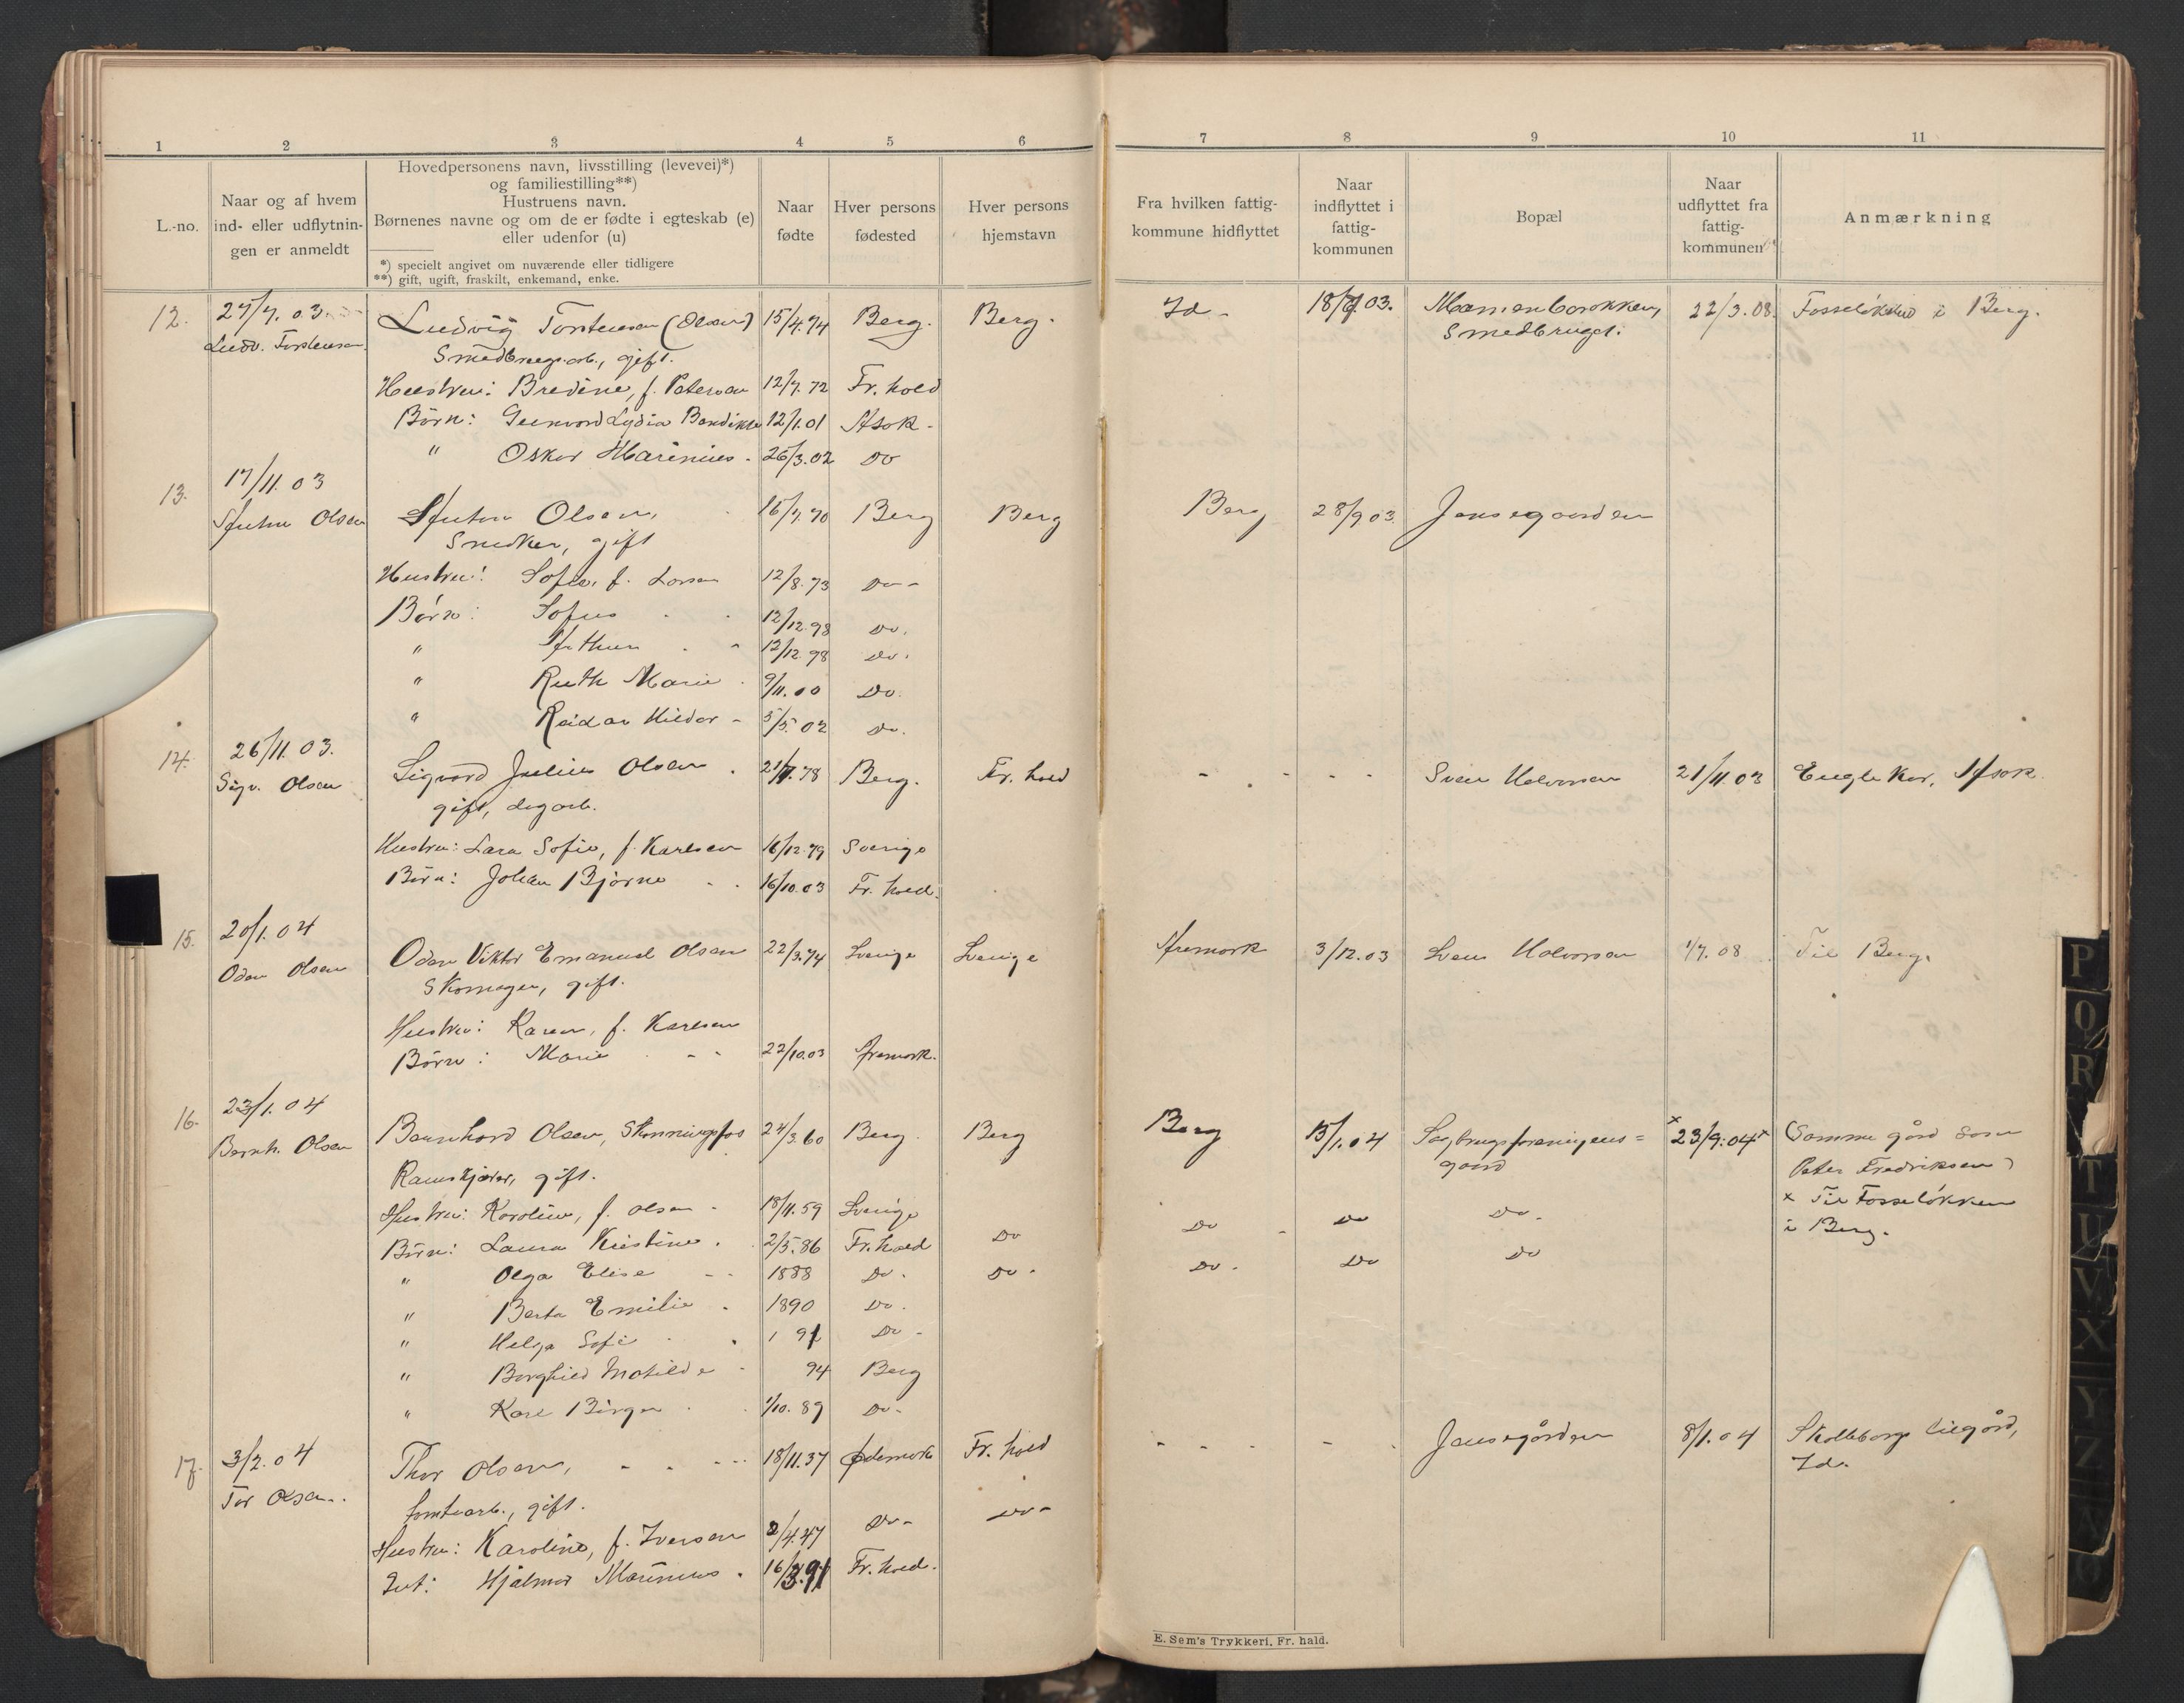 1 2 3 4 5 6 7 8 9 10 11
L.-no.
Naar og af hvem
ind- eller udflytnin-
gen er anmeldt
Hovedpersonens navn, livsstilling (levevei)*)
og familiestilling**)
Hustruens navn.
Børnenes navne og om de er fødte i egteskab (e)
eller udenfor (u)
*) specielt angivet om nuværende eller tidligere
**) gift, ugift, fraskilt, enkemand, enke.
Naar
fødte
Hver persons
fødested
Hver persons
hjemstavn
Fra hvilken fattig-
kommune hidflyttet
Naar
indflyttet i
fattig-
kommunen
Bopæl
Naar
udflyttet fra
fattig-
kommunen
Anmærkning
12. 27/7. 03. Ludvig Torstensen (Olsen) 15/4.74 Berg. Berg. Id - 18/7 03. 22/3.08. Fosseløkken i Berg.
Ludv. Torstensen Smedbrugsarb., gift. Smedbruget.
Hustru: Bredine, f. Petersen 12/7.72 Fr.hald
Børn: Lydia 12/1.01 Asak -
" Oskar Marinius - 26/3.02 Do
13. 17/11. 03
Anton Olsen Anton Olsen, 16/7.70 Berg Berg Berg 28/9 03. Jensegaarden
Snedker, gift
Hustru: Sofie, f. Larsen 12/8.73 Do -
Børn: Sofus 12/12.98 Do.
" Arthur 12/12.98 Do.
" Ruth Marie 9/11.00 Do.
" Reidar Hildar - 5/5.02 Do.
14. 26/11.03.
Sigv. Olsen Sigvard Julius Olsen 78 Berg. Fr. hald - - - - Sven Halvorsen 21/11.03 Asak
gift, dagarb.
Hustru: Lara Sofie, f. Karlsen 16/12.79 Sverige
Børn: Johan Bjarne 16/10.03 Fr. hald.
15. 20/1.04
Oden Olsen Oden Viktor Emanuel Olsen 22/3.74 Sverige Sverige Aremark 3/12.03 Sven Halvorsen 1/7.08 Til Berg.
Skomager, gift.
Hustru: Karen, f. Karlsen
Børn: Marie - - 22/10.03 Aremark.
16. 23/1.04
Bernh. Olsen Bernhard Olsen, Skonningsfos 24/3.60 Berg. Berg Berg 15/1.04 Sagbrugsforeningens= x 23/9.04 x (Samme gård som
Ramskjærer, gift. gaard Peter Fredriksen)
Hustru: Karoline, f. Olsen - 18/11.59 Sverige Do - Do Do - x Til Fosseløkken
Børn: Laura Kristine. 2/5.86 Fr.hald Do Do - Do Do i Berg.
" Olga Elise - - 1888 Do - Do -
" Berta Emilie - 1890 Do.
" Helga Sofie 1 91 Do -
" Borghild Matilde - 94 Berg
" Karl Birger 1/10. 89 Do -
17. 3/2.04
Tor Olsen. Thor Olsen, 18/11.37 Ødemark Fr. hald - - - - Jensegården 8/1.04 Skolleborg liegård,
Tomtearb., gift. Id.
Hustru: Karoline, f. Iversen 2/4.47 Do - Do -
Gut: Hjalmar Marinius. 16/3.91 Fr.hald.
E. Sem's Trykkeri, Fr. hald.
P
Q
R
T
U
V
X
Y
Z
Æ
Ø